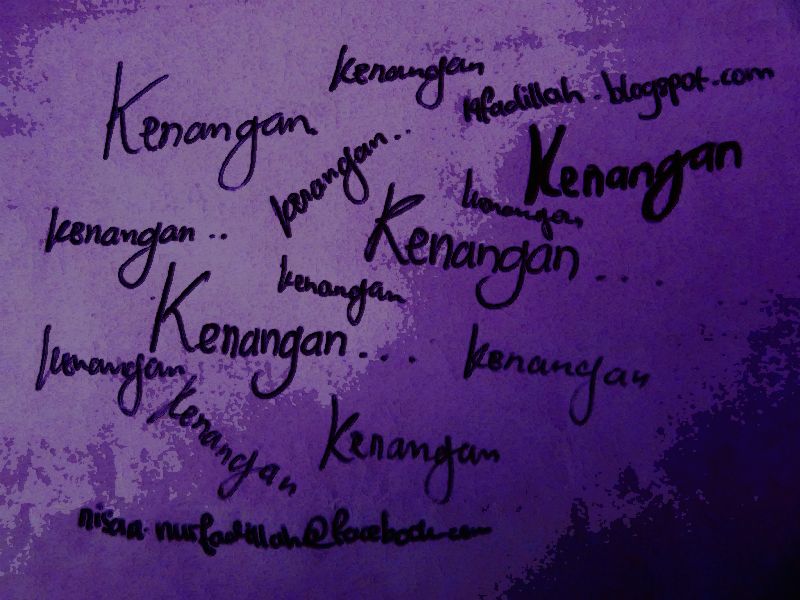 kenangan
Kenangan.
nfadillah.blogspot.com
kenangan..
Kenangan
kenangan
kenangan..
Kenangan....
kenangan
Kenangan...
kenangan
kenangan
kenangan
Kenangan
nisaa.nurfadillah@facebook.com